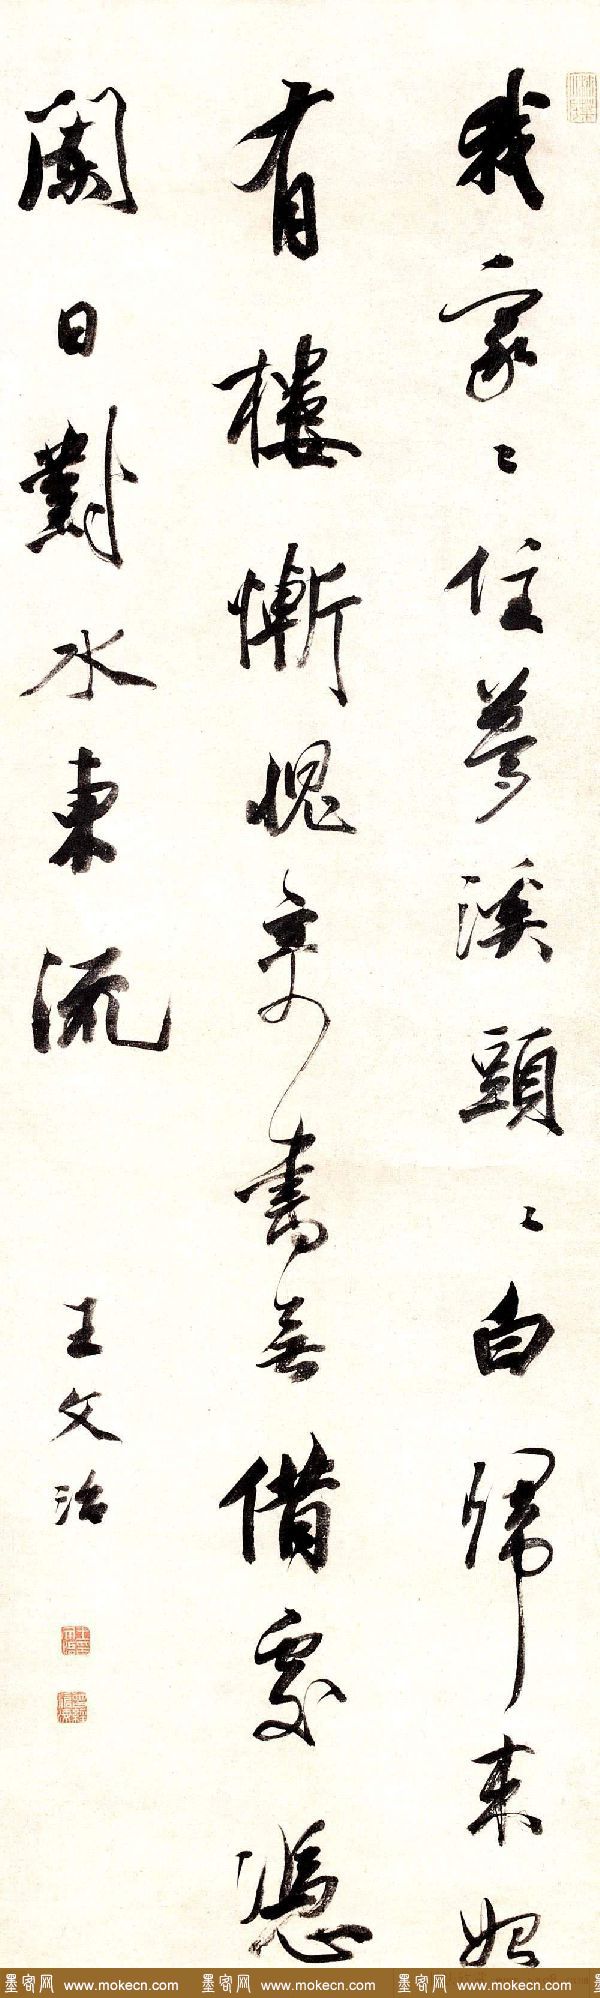 我家〻住夢溪頭〻白歸來始
有樓慚愧奇書無借處憑
闌日對水東流
王文治
墨客网 www.mokecn.com 墨客网 www.mokecn.com 墨客网 www.mokecn.com